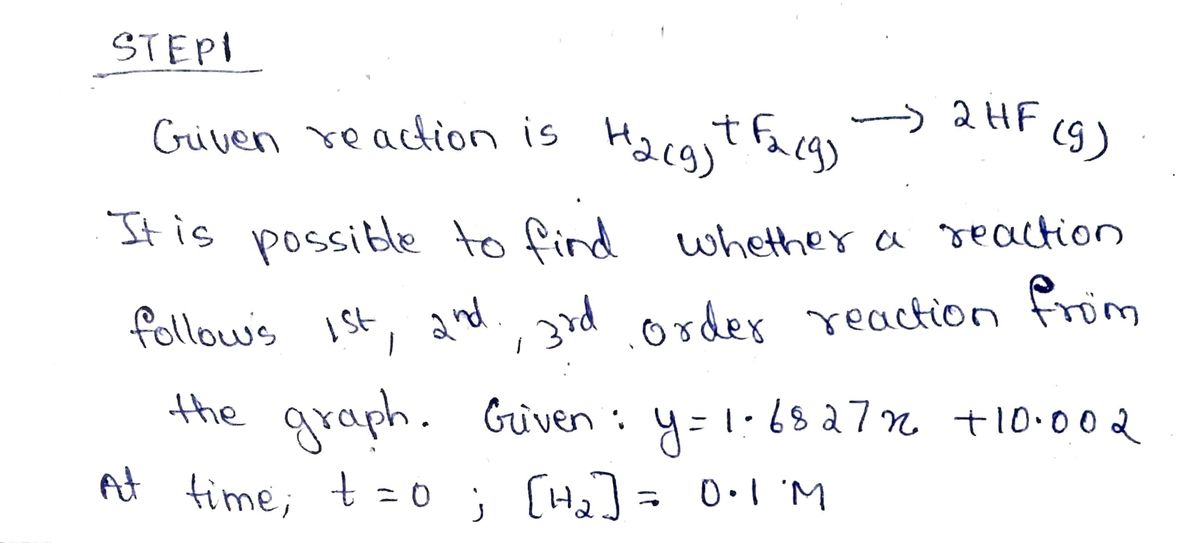 STEP1
Given reaction is H₂(g) + F₂(g) → 2HF(g)
It is possible to find whether a reaction
follows 1st, 2nd, 3rd order reaction from
the graph. Given : y = 1.6827x + 10.002
At time, t = 0 ; [H₂] = 0.1 M